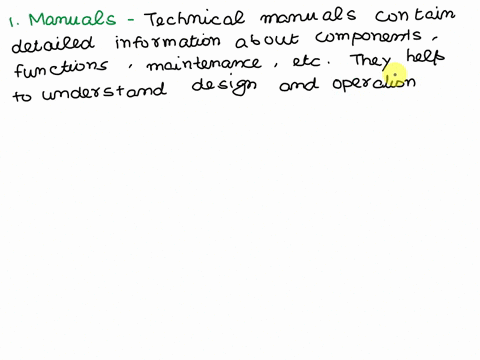 1. Manuals - Technical manuals contain
detailed information about components,
functions, maintenance, etc. They help
to understand design and operation